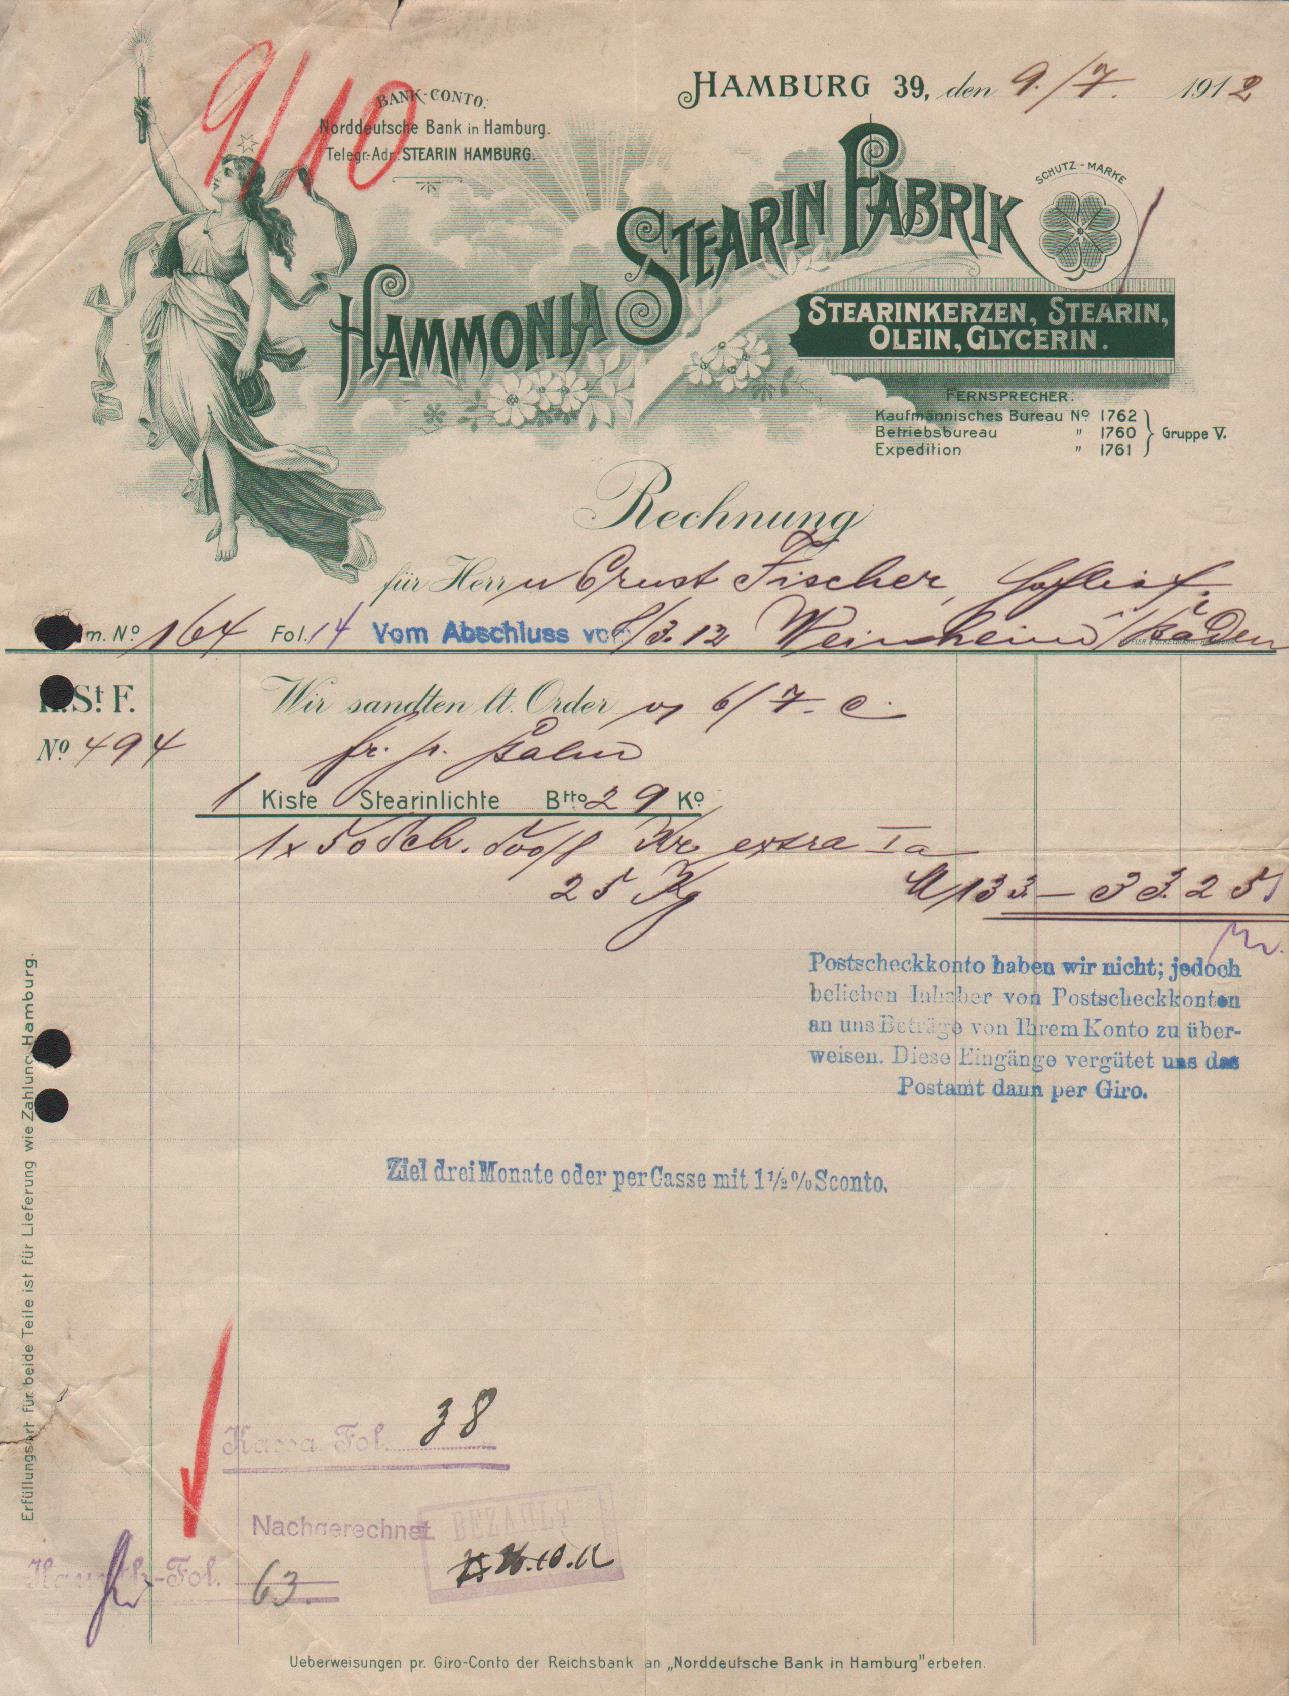 9/10
BANK-CONTO:
Norddeutsche Bank in Hamburg.
Telegr.-Adr. STEARIN HAMBURG.
HAMBURG 39, den 9./7. 1912
HAMMONIA STEARIN FABRIK
SCHUTZ-MARKE
STEARINKERZEN, STEARIN,
OLEIN, GLYCERIN.
FERNSPRECHER:
Kaufmännisches Bureau No 1762
Betriebsbureau " 1760
Expedition " 1761
Gruppe V.
Rechnung
für Herrn Ernst Fischer, Hoflief.
m. No 164 Fol. 14 Vom Abschluss vom /3.12 Weinheim /Baden
H.St.F. Wir sandten lt. Order v. 6/7. c.
No 494 fr. p. Bahn
1 Kiste Stearinlichte Btto 29 Ko
1 x 50 Sch. 500/8 Kr. extra Ia
25 Kg M 133.— 33.25
Postscheckkonto haben wir nicht; jedoch
belieben Inhaber von Postscheckkonten
an uns Beträge von Ihrem Konto zu über-
weisen. Diese Eingänge vergütet uns das
Postamt dann per Giro.
Ziel drei Monate oder per Casse mit 1½% Sconto.
Erfüllungsort für beide Teile ist für Lieferung wie Zahlung Hamburg.
Kassa Fol. 38
Nachgerechnet
BEZAHLT
26.10.12
-Fol. 63.
Ueberweisungen pr. Giro-Conto der Reichsbank an „Norddeutsche Bank in Hamburg" erbeten.